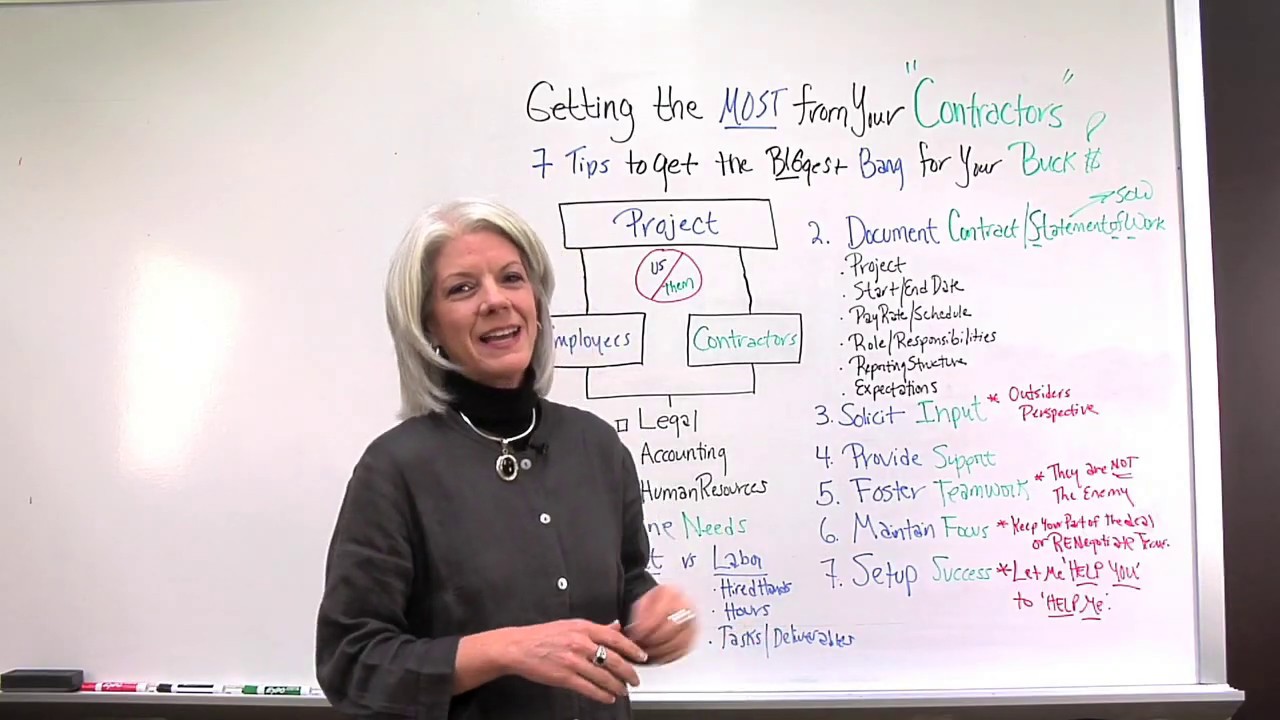 Getting the MOST from Your "Contractors"
7 Tips to get the BIGgest Bang for Your Buck $
Project
US
Them
mployees
Contractors
Legal
Accounting
Human Resources
ne Needs
t vs Labor
· Hired Hands
· Hours
· Tasks/Deliverables
2. Document Contract/Statement of Work
SOW
· Project
· Start/End Date
· Pay Rate/Schedule
· Role/Responsibilities
· Reporting Structure
· Expectations
3. Solicit Input * Outsiders
Perspective
4. Provide Support
5. Foster Teamwork * They are NOT
The Enemy
6. Maintain Focus * Keep Your Part of the deal
or RENegotiate
7. Setup Success * Let Me 'HELP YOU'
to 'HELP Me'.